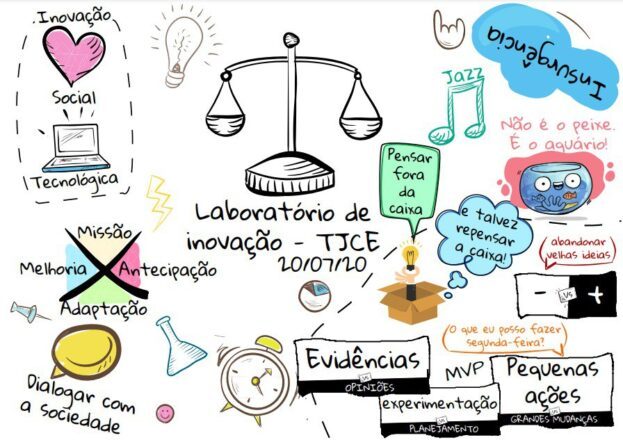 Inovação
Social
Tecnológica
Insurgência
Jazz
Não é o peixe.
É o aquário!
Pensar
fora
da
caixa
e talvez
repensar
a caixa!
Laboratório de
inovação - TJCE
20/07/20
Missão
Melhoria
Antecipação
Adaptação
abandonar
velhas ideias
- vs +
O que eu posso fazer
segunda-feira?
Evidências
vs
OPINIÕES
MVP
experimentação
vs
PLANEJAMENTO
Pequenas
ações
vs
GRANDES MUDANÇAS
Dialogar com
a sociedade